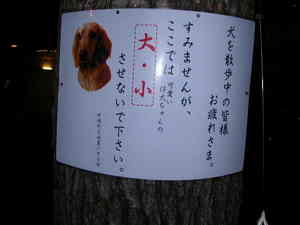 犬を散歩中の皆様
お疲れさま。
すみませんが、
ここでは 可愛い
ワンちゃんの
大・小
させないで下さい。